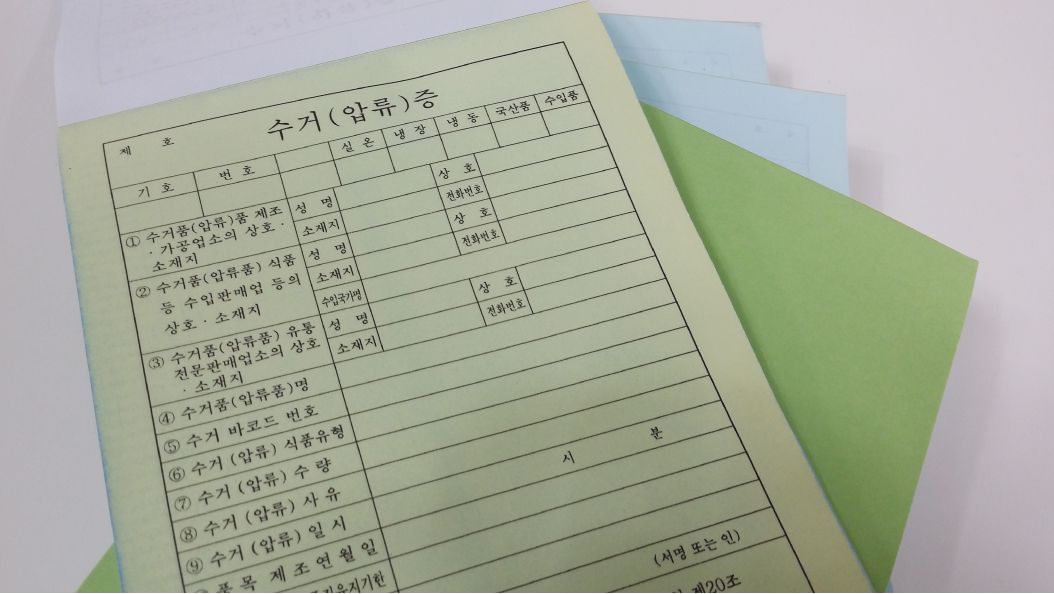 제 호
수거(압류)증
기 호 번 호 실 온 냉 장 냉 동 국산품 수입품
① 수거품(압류)품 제조
· 가공업소의 상호 ·
소재지
성 명 상 호
소재지 전화번호
② 수거품(압류품) 식품
등 수입판매업 등의
상호 · 소재지
성 명 상 호
소재지 전화번호
수입국가명
③ 수거품(압류품) 유통
전문판매업소의 상호
· 소재지
성 명 상 호
소재지 전화번호
④ 수거품(압류품)명
⑤ 수거 바코드 번호
⑥ 수거 (압류) 식품유형
⑦ 수거 (압류) 수 량
⑧ 수거 (압류) 사 유
⑨ 수거 (압류) 일 시 시 분
품 목 제 조 연 월 일
유지기한
(서명 또는 인)
제20조